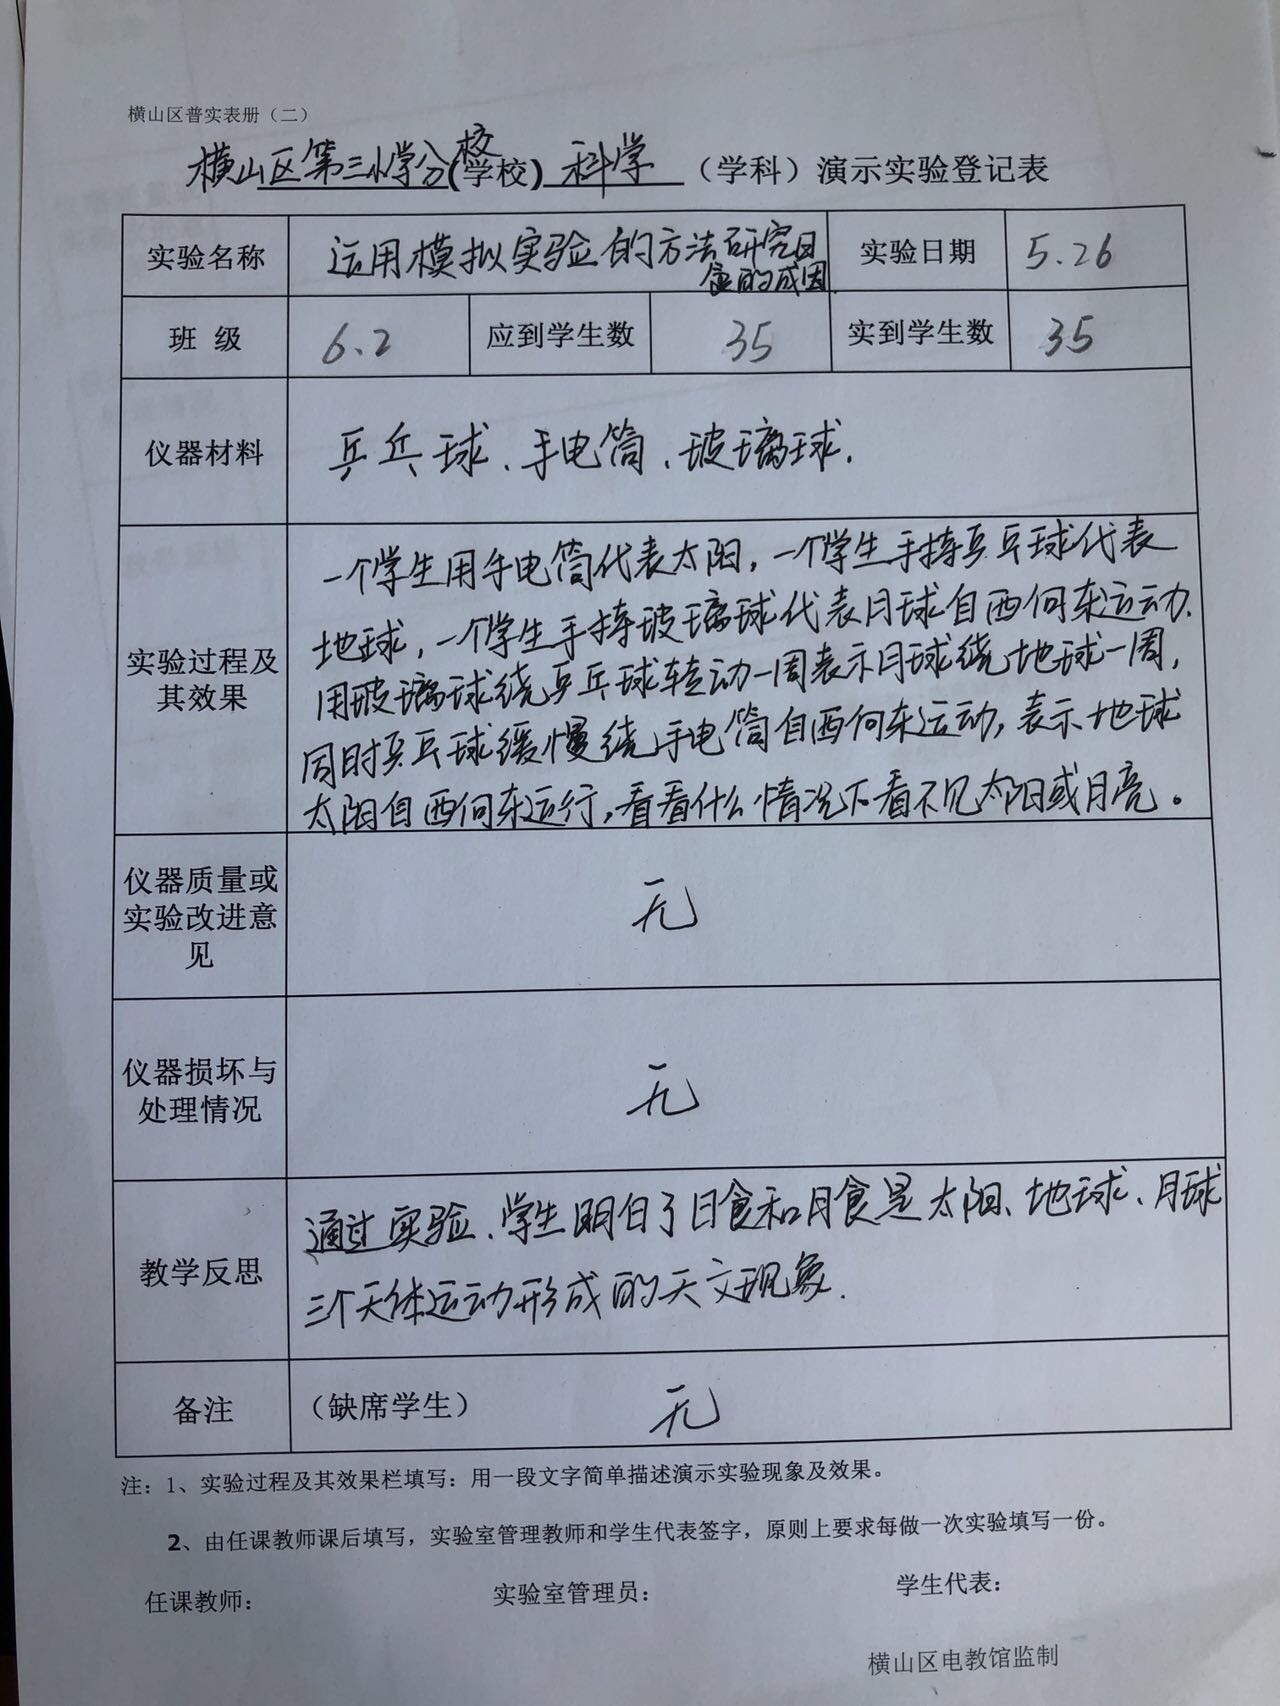 横山区普实表册（二）
横山区第三小学分校(学校) 科学 （学科）演示实验登记表
实验名称 运用模拟实验的方法研究日食的成因 实验日期 5.26
班 级 6.2 应到学生数 35 实到学生数 35
仪器材料 乒乓球、手电筒、玻璃球.
实验过程及其效果
一个学生用手电筒代表太阳，一个学生手持乒乓球代表
地球，一个学生手持玻璃球代表月球自西向东运动.
用玻璃球绕乒乓球转动一周表示月球绕地球一周，
同时乒乓球缓慢绕手电筒自西向东运动，表示地球
太阳自西向东运行，看看什么情况下看不见太阳或月亮。
仪器质量或实验改进意见 无
仪器损坏与处理情况 无
教学反思
通过实验、学生明白了日食和月食是太阳、地球、月球
三个天体运动形成的天文现象.
备注 （缺席学生） 无
注：1、实验过程及其效果栏填写：用一段文字简单描述演示实验现象及效果。
2、由任课教师课后填写，实验室管理教师和学生代表签字，原则上要求每做一次实验填写一份。
任课教师： 实验室管理员： 学生代表：
横山区电教馆监制